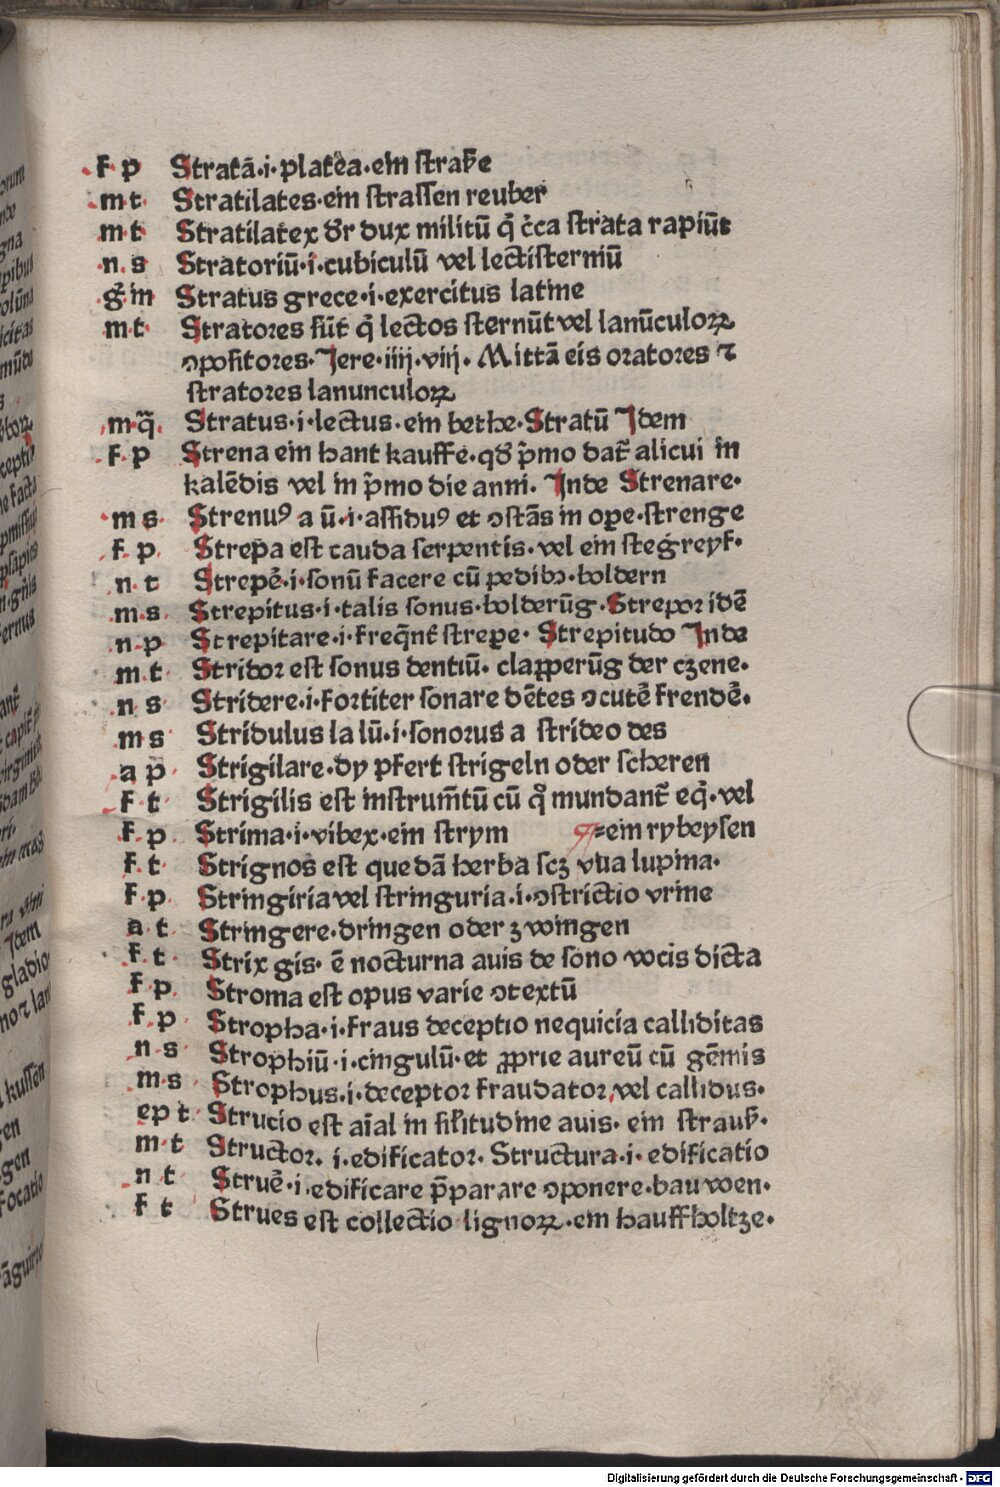 f p Stratā·i·platea·ein straße
m t Stratilates·ein strassen reuber
m t Stratilatex dr̄ dux militū q̄ c̄ca strata rapiūt
n s Stratoriū·i·cubiculū vel lectisterniū
ḡ in Stratus grece·i·exercitus latine
m t Stratores sūt q̄ lectos sternūt vel lanūculoꝝ
ɔpositores·Jere·iiij·viij·Mittā eis oratores ⁊
stratores lanunculoꝝ
m q̄ Stratus·i·lectus·ein bethe·Stratū Jdem
f p Strena ein hant kauffe·qd̄ p̄mo dat̄ alicui in
kalēdis vel in p̄mo die anni. Jnde Strenare·
m s Strenuꝰ a ū·i·assiduꝰ et ɔstās in oꝑe·strenge
f p Strepa est cauda serpentis·vel ein stegreyf·
n t Strepē·i·sonū facere cū pedibꝫ·boldern
m s Strepitus·i·talis sonus·bolderūg·Strepor idē
n p Strepitare·i·freq̄nt̄ strepe· Strepitudo Jnde
m t Stridor est sonus dentiū· claꝑperūg der czene·
n s Stridere·i·fortiter sonare dētes ɔcutē frendē·
m s Stridulus la lū·i·sonorus a strideo des
a p Strigilare·dy pfert strigeln oder scheren
f t Strigilis est instrum̄tū cū qͦ mundant̄ eq̄·vel
f p Strima·i·vibex·ein strym ¶=ein rybeysen
f t Strignos est quedā herba scꝫ vua lupina·
f p Stringiria vel stringuria·i·ɔstrictio vrine
a t Stringere·dringen oder zwingen
f t Strix gis· ē nocturna auis de sono vocis dicta
f p Stroma est opus varie ɔtextū
f p Stropha·i·fraus deceptio nequicia calliditas
n s Strophiū·i·cingulū·et ꝓprie aureū cū gēmis
m s Strophus·i·deceptor fraudator vel callidus·
ep t Strucio est aīal in sil̄itudine auis· ein strauß·
m t Structor· i·edificator· Structura·i·edificatio
n t Struē·i·edificare p̄parare ɔponere·bauwen·
f t Strues est collectio lignoꝝ·ein hauff holtze·
Digitalisierung gefördert durch die Deutsche Forschungsgemeinschaft · DFG